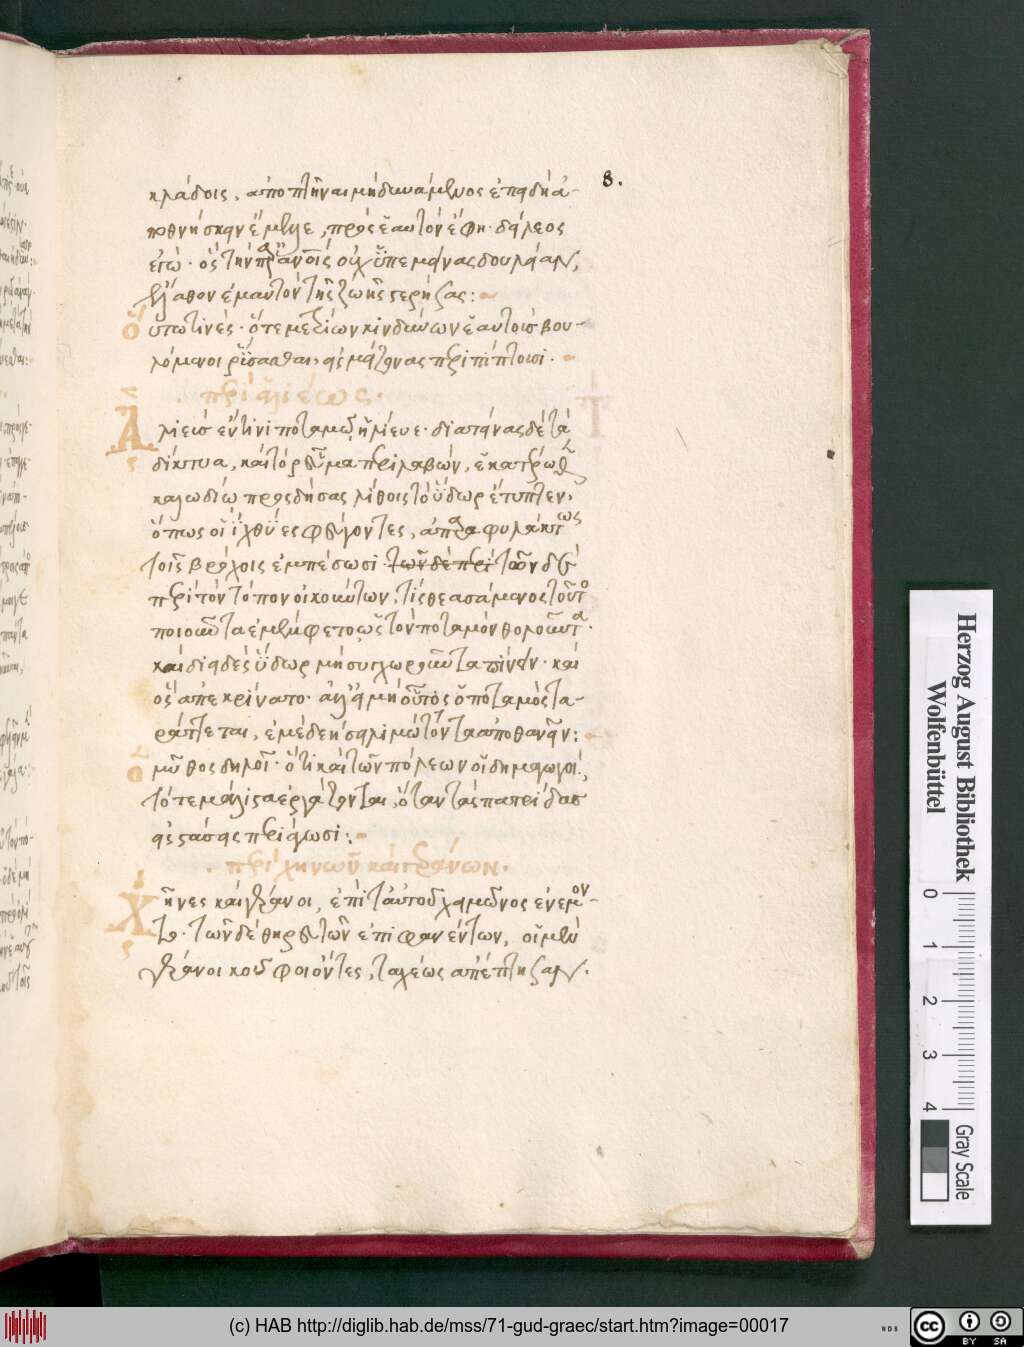 8.
κλάδοις, ἀποπτῆναι μὴ δυνάμενος ἐπειδὴ ἀ-
ποθνήσκειν ἔμελλε, πρὸς ἑαυτὸν ἔφη· δείλεος
ἐγώ· ὃς τὴν παρ' ἀνοις οὐχ ὑπομείνας δουλείαν,
ἔλαθον ἐμαυτὸν τῆς ζωῆς στερήσας:
τινές· ὅτε μετρίων κινδύνων ἑαυτοὺς βου-
λόμενοι ῥύσασθαι, εἰς μείζονας περιπίπτουσι.
περὶ ἁλιέως.
Ἁλιεὺς ἔν τινι ποταμῷ ἡλίευε· διατείνας δὲ τὰ
δίκτυα, καὶ τὸ ῥεῦμα περιλαβὼν, ἑκατέρωθεν
καλωδίῳ προσδήσας λίθοις τὸ ὕδωρ ἔτυπτεν,
ὅπως οἱ ἰχθύες φεύγοντες, ἀπαραφυλάκτως
τοῖς βρόχοις ἐμπέσωσι· τῶν δὲ περὶ τῶν δὲ
περὶ τὸν τόπον οἰκούντων, τὶς θεασάμενος τοῦτο
ποιοῦντα ἐμέμφετο ὡς τὸν ποταμὸν θολοῦντα·
καὶ διειδὲς ὕδωρ μὴ συγχωροῦντα πίνειν· καὶ
ὃς ἀπεκρίνατο· ἀλλ' εἰ μὴ οὕτως ὁ ποταμὸς τα-
ράττεται, ἐμὲ δεήσει λιμώττοντα ἀποθανεῖν:
ὁ μῦθος δηλοῖ· ὅτι καὶ τῶν πόλεων οἱ δημαγωγοί,
τότε μάλιστα ἐργάζονται, ὅταν τὰς πατρίδας
εἰς στάσεις περιάγωσι:
περὶ χηνῶν καὶ γεράνων.
Χῆνες καὶ γέρανοι, ἐπὶ ταὐτοῦ λειμῶνος ἐνέμον-
το· τῶν δὲ θηρευτῶν ἐπιφανέντων, οἱ μὲν
γέρανοι κοῦφοι ὄντες, ταχέως ἀπέπτησαν.
Herzog August Bibliothek
Wolfenbüttel
0 1 2 3 4
Gray Scale
(c) HAB http://diglib.hab.de/mss/71-gud-graec/start.htm?image=00017
WDB
cc BY SA